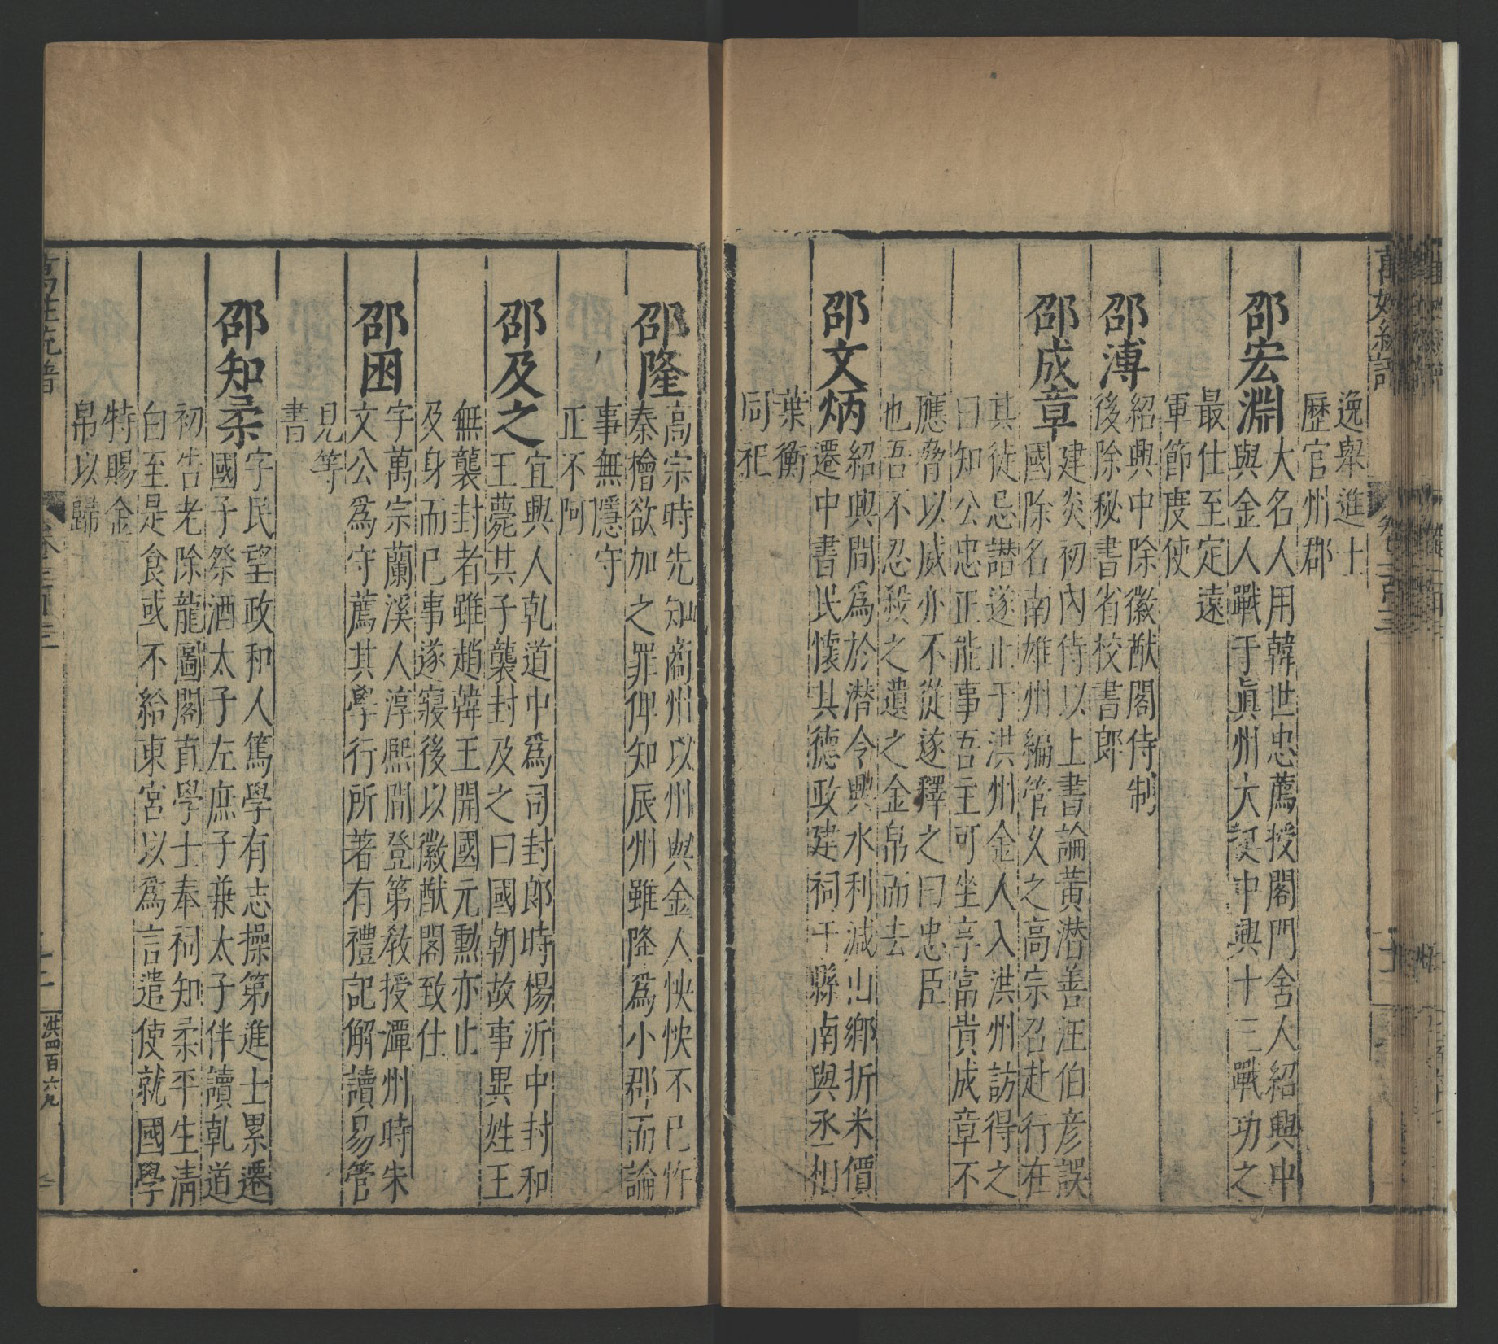 逸舉進士
歷官州郡
邵宏淵
大名人用韓世忠薦授閣門舍人紹興中
與金人戰于眞州大捷中興十三戰功之
最仕至定遠
軍節度使
邵溥
紹興中除徽猷閣侍制
後除秘書省校書郎
邵成章
建炎初內侍以上書論黃潜善汪伯彦誤
國除名南雄州編管久之高宗召赴行在
其徒忌譖遂止于洪州金人入洪州訪得之
曰知公忠正能事吾主可坐享富貴成章不
應脅以威亦不從遂釋之曰忠臣
也吾不忍殺之遺之金帛而去
邵文炳
紹興間爲於潜令興水利減山鄉折米價
遷中書民懷其德政建祠于縣南與丞相
葉衡
同祀
邵隆
高宗時先知商州以州與金人怏怏不已忤
秦檜欲加之罪俾知辰州雖隆爲小郡而論
事無隱守
正不阿
邵及之
宜興人乹道中爲司封郎時惕沂中封和
王薨其子襲封及之曰國朝故事異姓王
無襲封者雖趙韓王開國元勳亦止
及身而已事遂寢後以徽猷閣致仕
邵困
字萬宗蘭溪人淳熙間登第敎授潭州時朱
文公爲守薦其學行所著有禮記解讀易管
見等
書
邵知柔
字民望政和人篤學有志操第進士累遷
國子祭酒太子左庶子兼太子伴讀乹道
初告老除龍圖閣直學士奉祠知柔平生清
白至是食或不給東宮以爲言遣使就國學
特賜金
帛以歸
萬姓統譜
洪四百六九